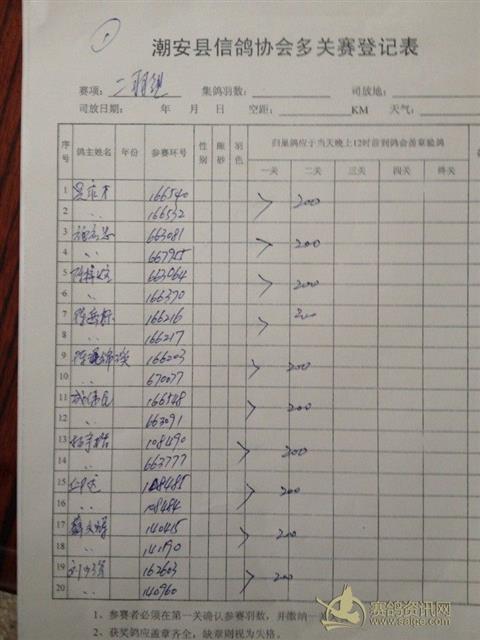 1
潮安县信鸽协会多关赛登记表
赛项: 二羽组 集鸽羽数: 司放地:
司放日期: 年 月 日 空距: KM 天气:
序号 鸽主姓名 年份 参赛环号 性别 眼砂 羽色 归巢鸽应于当天晚上12时前到鸽会盖章验鸽
一关 二关 三关 四关 终关
1 166540 200
2 〃 166532
3 663081 200
4 〃 667945
5 663064 200
6 〃 166370
7 166216 200
8 〃 166217
9 166203 200
10 〃 670077
11 166548 200
12 〃 663091
13 108490 200
14 〃 663777
15 108485 200
16 〃 108484
17 140415 200
18 〃 141190
19 162603 200
20 〃 140960
1、参赛者必须在第一关确认参赛羽数,并缴纳一
2、获奖鸽应盖章齐全,缺章则视为失格。
赛鸽资讯网
www.saige.com